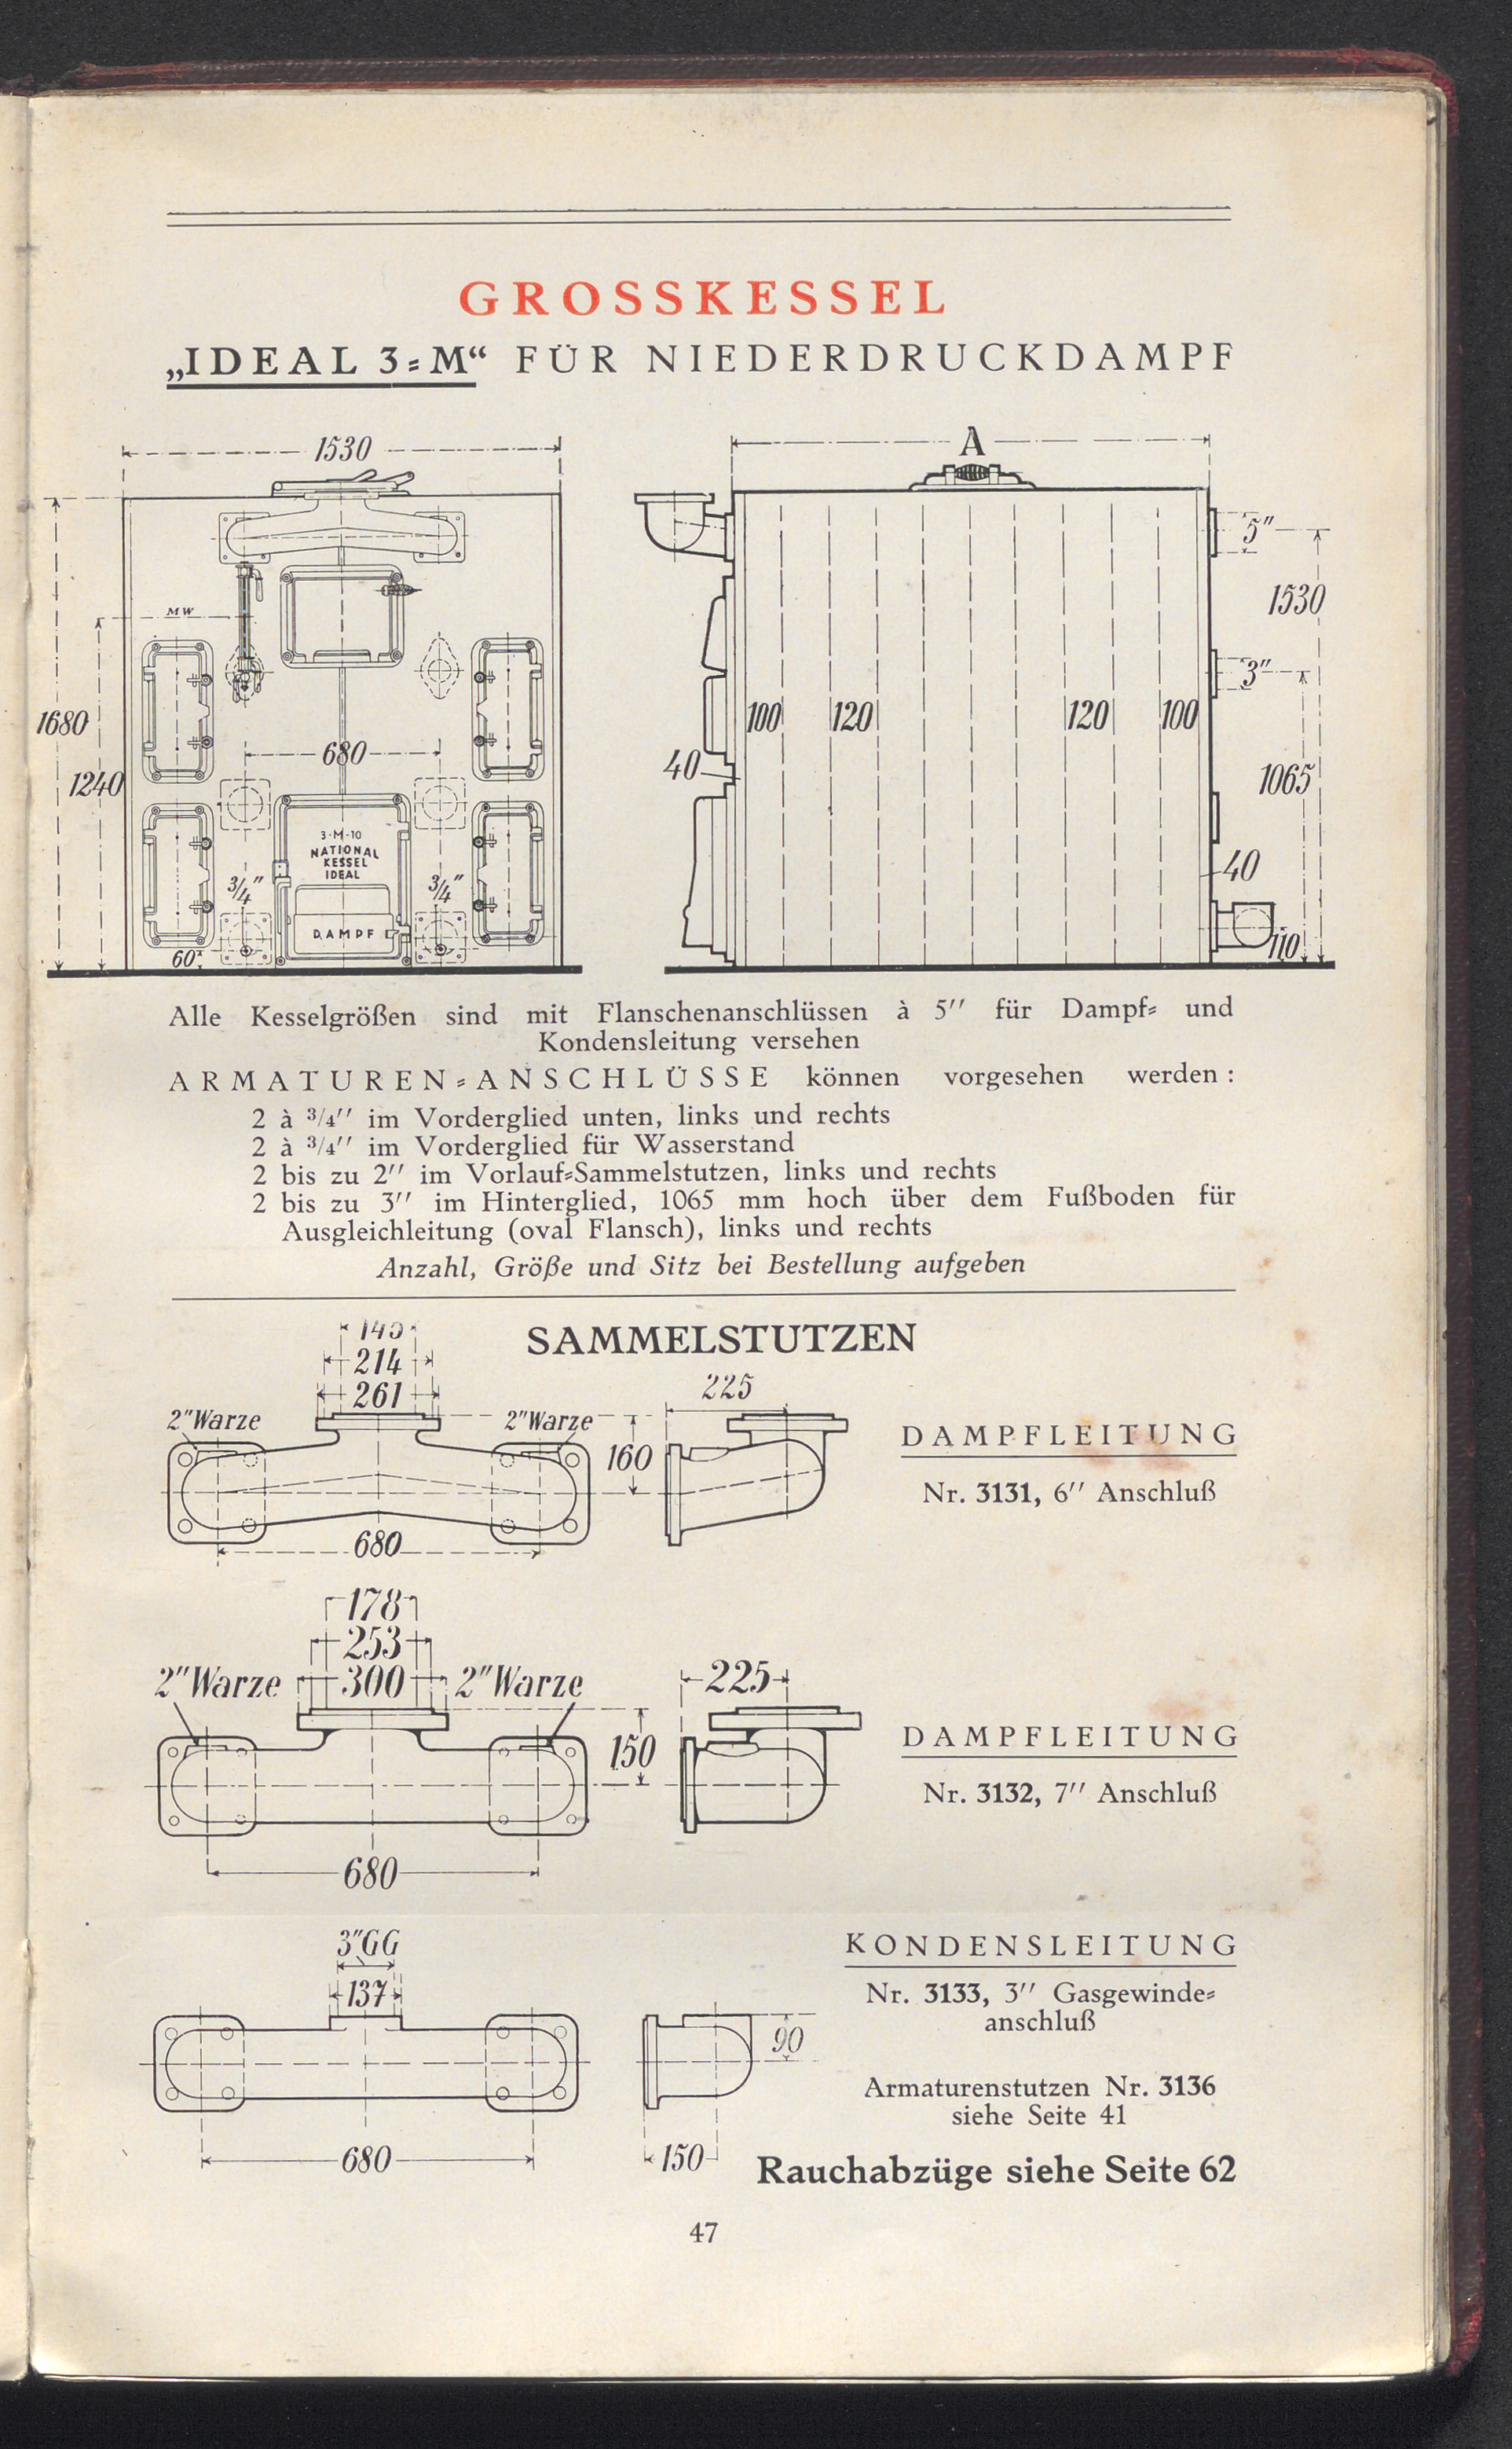 GROSSKESSEL
„IDEAL 3=M“ FÜR NIEDERDRUCKDAMPF
1530
A
5″
MW
1530
3″
1680
680
100
120
120
100
40
1240
1065
3-M-10
NATIONAL
KESSEL
IDEAL
3/4″
3/4″
40
DAMPF
60
110
Alle Kesselgrößen sind mit Flanschenanschlüssen à 5′′ für Dampf= und
Kondensleitung versehen
ARMATUREN=ANSCHLÜSSE können vorgesehen werden:
2 à 3/4′′ im Vorderglied unten, links und rechts
2 à 3/4′′ im Vorderglied für Wasserstand
2 bis zu 2′′ im Vorlauf=Sammelstutzen, links und rechts
2 bis zu 3′′ im Hinterglied, 1065 mm hoch über dem Fußboden für
Ausgleichleitung (oval Flansch), links und rechts
Anzahl, Größe und Sitz bei Bestellung aufgeben
SAMMELSTUTZEN
214
261
225
2″Warze
2″Warze
160
680
DAMPFLEITUNG
Nr. 3131, 6′′ Anschluß
178
253
300
2″Warze
2″Warze
225
150
680
DAMPFLEITUNG
Nr. 3132, 7′′ Anschluß
3″GG
137
90
680
150
KONDENSLEITUNG
Nr. 3133, 3′′ Gasgewinde=
anschluß
Armaturenstutzen Nr. 3136
siehe Seite 41
Rauchabzüge siehe Seite 62
47